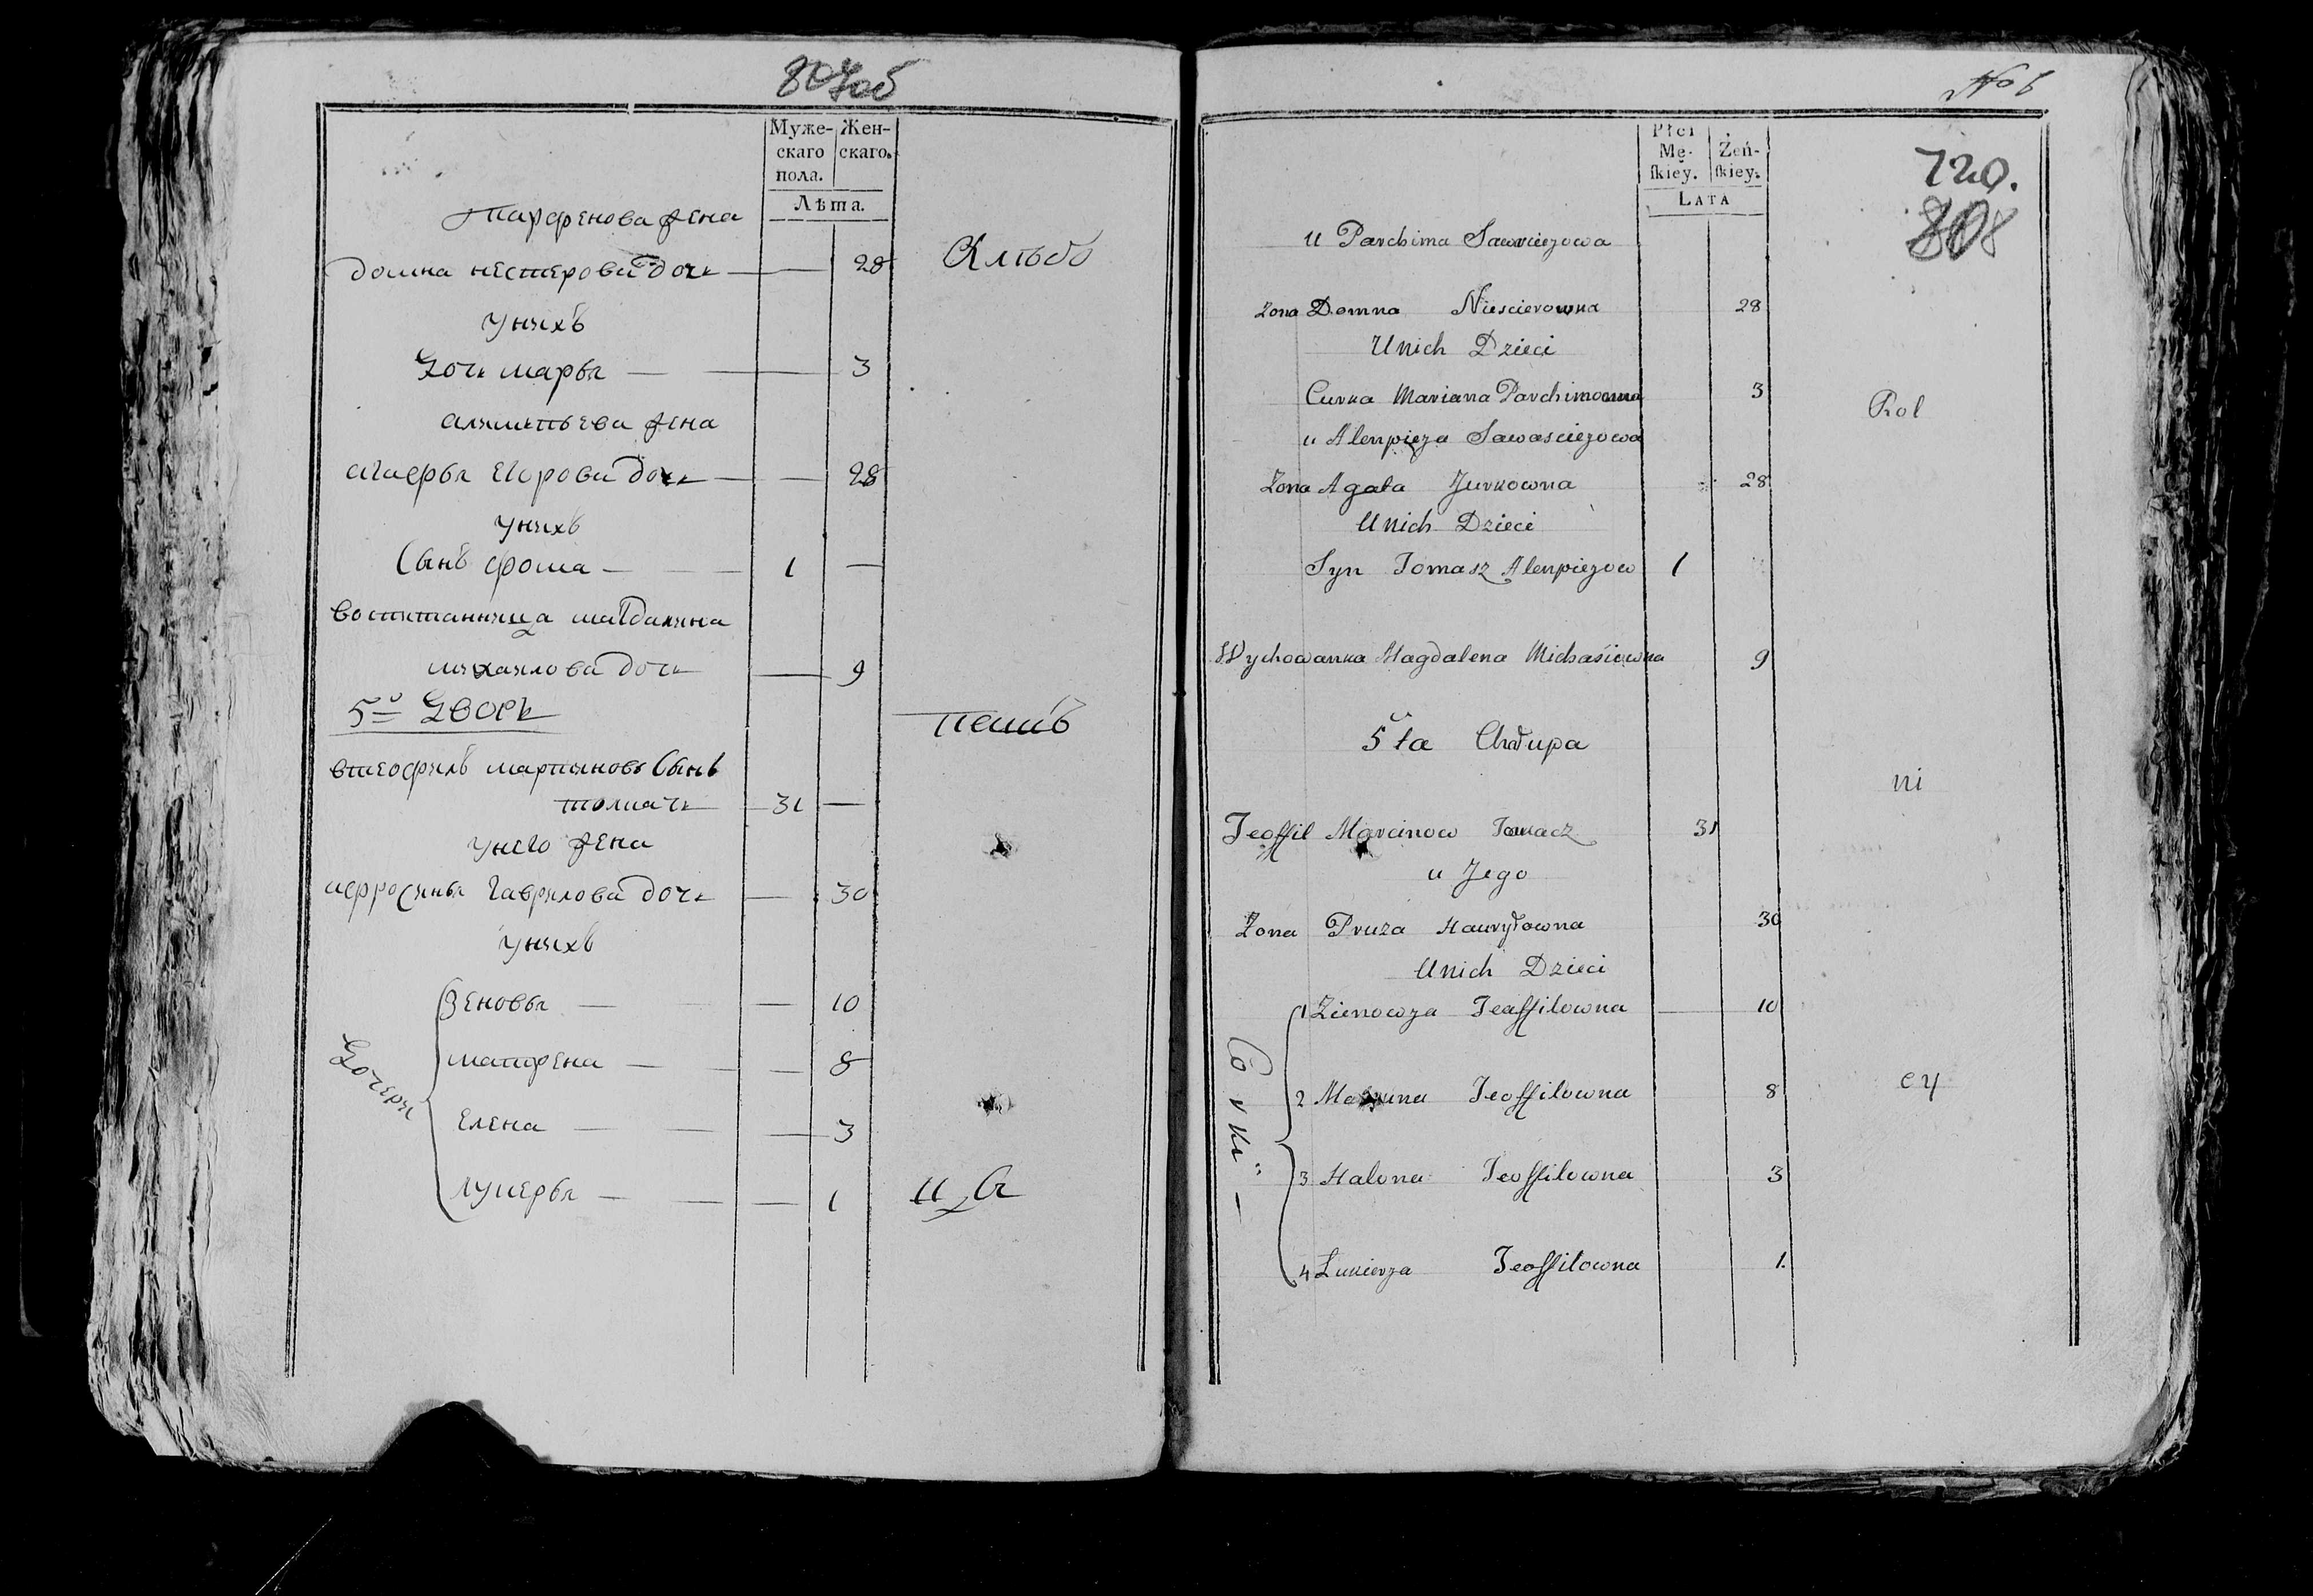 807об
Муже-
скаго
пола.
Жен-
скаго.
Лѣта.
Парфенова жена
домна нестерова дочь — 28
Хлѣбо
у нихъ
Дочь марья — 3
жена
егорова дочь — 28
у нихъ
Сынъ фома — 1 —
воспитанница магдалина
михайлова дочь — 9
5й Дворъ
пашъ
мартиновъ Сынъ
толкачь 31 —
у него жена
гаврилова дочь — 30
у нихъ
Дочери
зеновья — 10
матрена — 8
Елена — 3
лукерья — 1
ца
No 6
Płci
Mę-
ſkiey.
Żeń-
ſkiey.
LATA
720.
808
u Parchima
Żona Domna Niescierowna 28
U nich Dzieci
Curka Mariana Parchimowna 3
Rol
u Alenpieja Sawasciejowa
Żona Agata Jurkowna 28
U nich Dzieci
Syn Tomasz Alenpiejow 1
Wychowanka Magdalena Michasiowna 9
5ta Chałupa
ni
Teoffil Marcinow 31
u Jego
Żona Pruza Hauryłowna 30
U nich Dzieci
Corki
1 Zienowja Teoffilowna 10
2 Teoffilowna 8
cy
3 Halona Teoffilowna 3
4 Lukierja Teoffilowna 1.